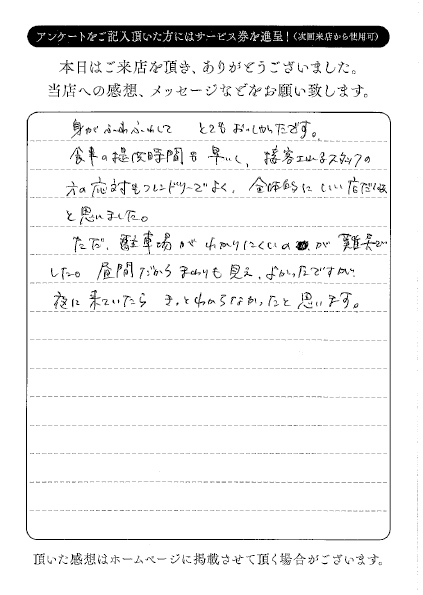 アンケートをご記入頂いた方にはサービス券を進呈！(次回来店から使用可)
本日はご来店を頂き、ありがとうございました。
当店への感想、メッセージなどをお願い致します。
身がふわふわして とてもおいしかったです。
食事の提供時間も早いし、接客スタッフの
方の応対もフレンドリーでよく、全体的にいい店だな
と思いました。
ただ、駐車場がわかりにくいのが難点で
した。昼間だからまわりも見え、よかったですが、
夜に来ていたらきっとわからなかったと思います。
頂いた感想はホームページに掲載させて頂く場合がございます。